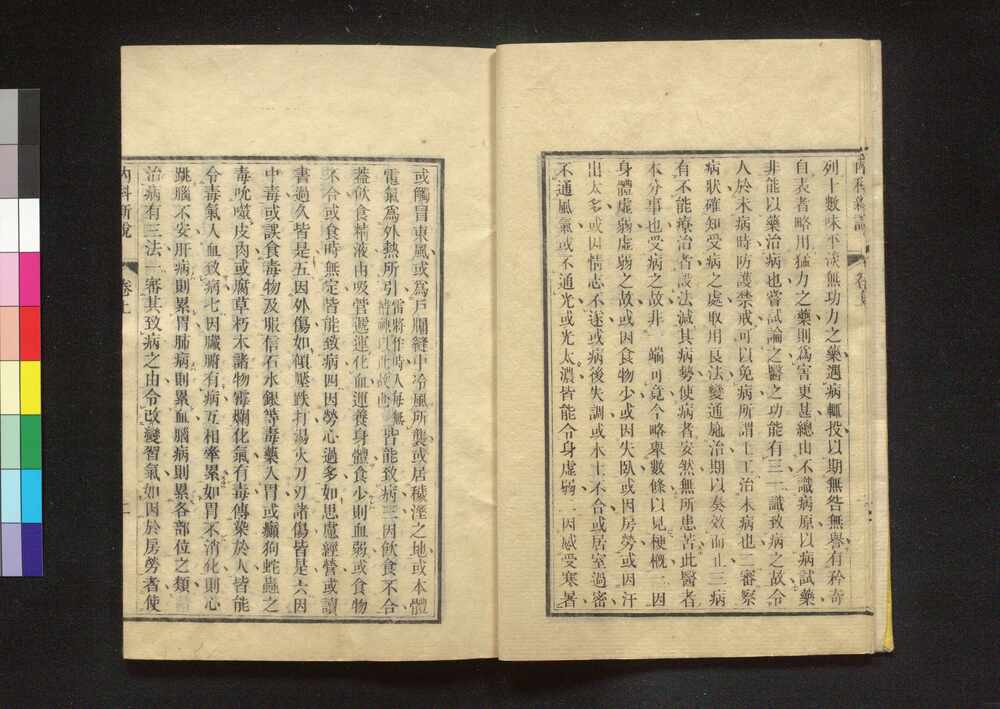 內科新說 卷上
列十數味平淡無功力之藥遇病輒投以期無咎無譽有矜奇
自表者略用猛力之藥則爲害更甚總由不識病原以病試藥
非能以藥治病也嘗試論之醫之功能有三一識致病之故令
人於未病時防護禁戒可以免病所謂上工治未病也一審察
病狀確知受病之處取用良法變通施治期以奏效而止三病
有不能療治者設法減其病勢使病者安然無所患苦此醫者
本分事也受病之故非一端可竟今略舉數條以見梗槪一因
身體虛弱虛弱之故或因食物少或因失臥或因房勞或因汗
出太多或因情志不遂或病後失調或水土不合或居室過密
不通風氣或不通光或光太濃皆能令身虛弱二因感受寒暑
或觸冒東風或爲戶闢縫中冷風所襲或居穢溼之地或本體
電氣爲外熱所引雷將作時人每無皆能致病三因飲食不合
蓋飲食精液由吸管遞運化血運養身體食少則血弱或食物
不合或食時無定皆能致病四因勞心過多如思慮經營或讀
書過久皆是五因外傷如傾壓跌打湯火刀刃諸傷皆是六因
中毒或誤食毒物及服信石水銀等毒藥入胃或癲狗蛇蟲之
毒吮嚙皮肉或腐草朽木諸物霉爛化氣有毒傳染於人皆能
令毒氣入血致病七因臟腑有病互相牽累如胃不消化則心
跳腦不安肝病則累胃肺病則累血腦病則累各部位之類
治病有三法一審其致病之由令改變習氣如因於房勞者使
內科新說 卷上 二